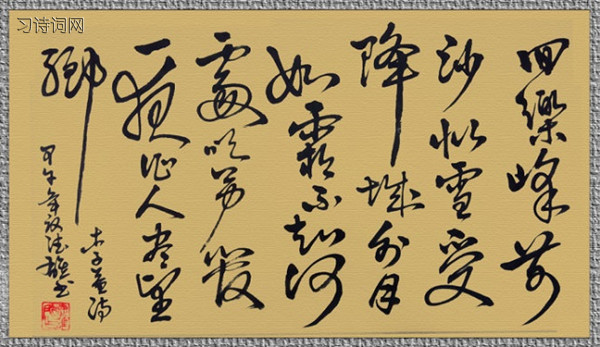 习诗词网
回樂峰前
沙似雪受
降城外月
如霜不知何
處吹芦管
一夜征人尽望
鄉
木子益诗
甲午年德雄书